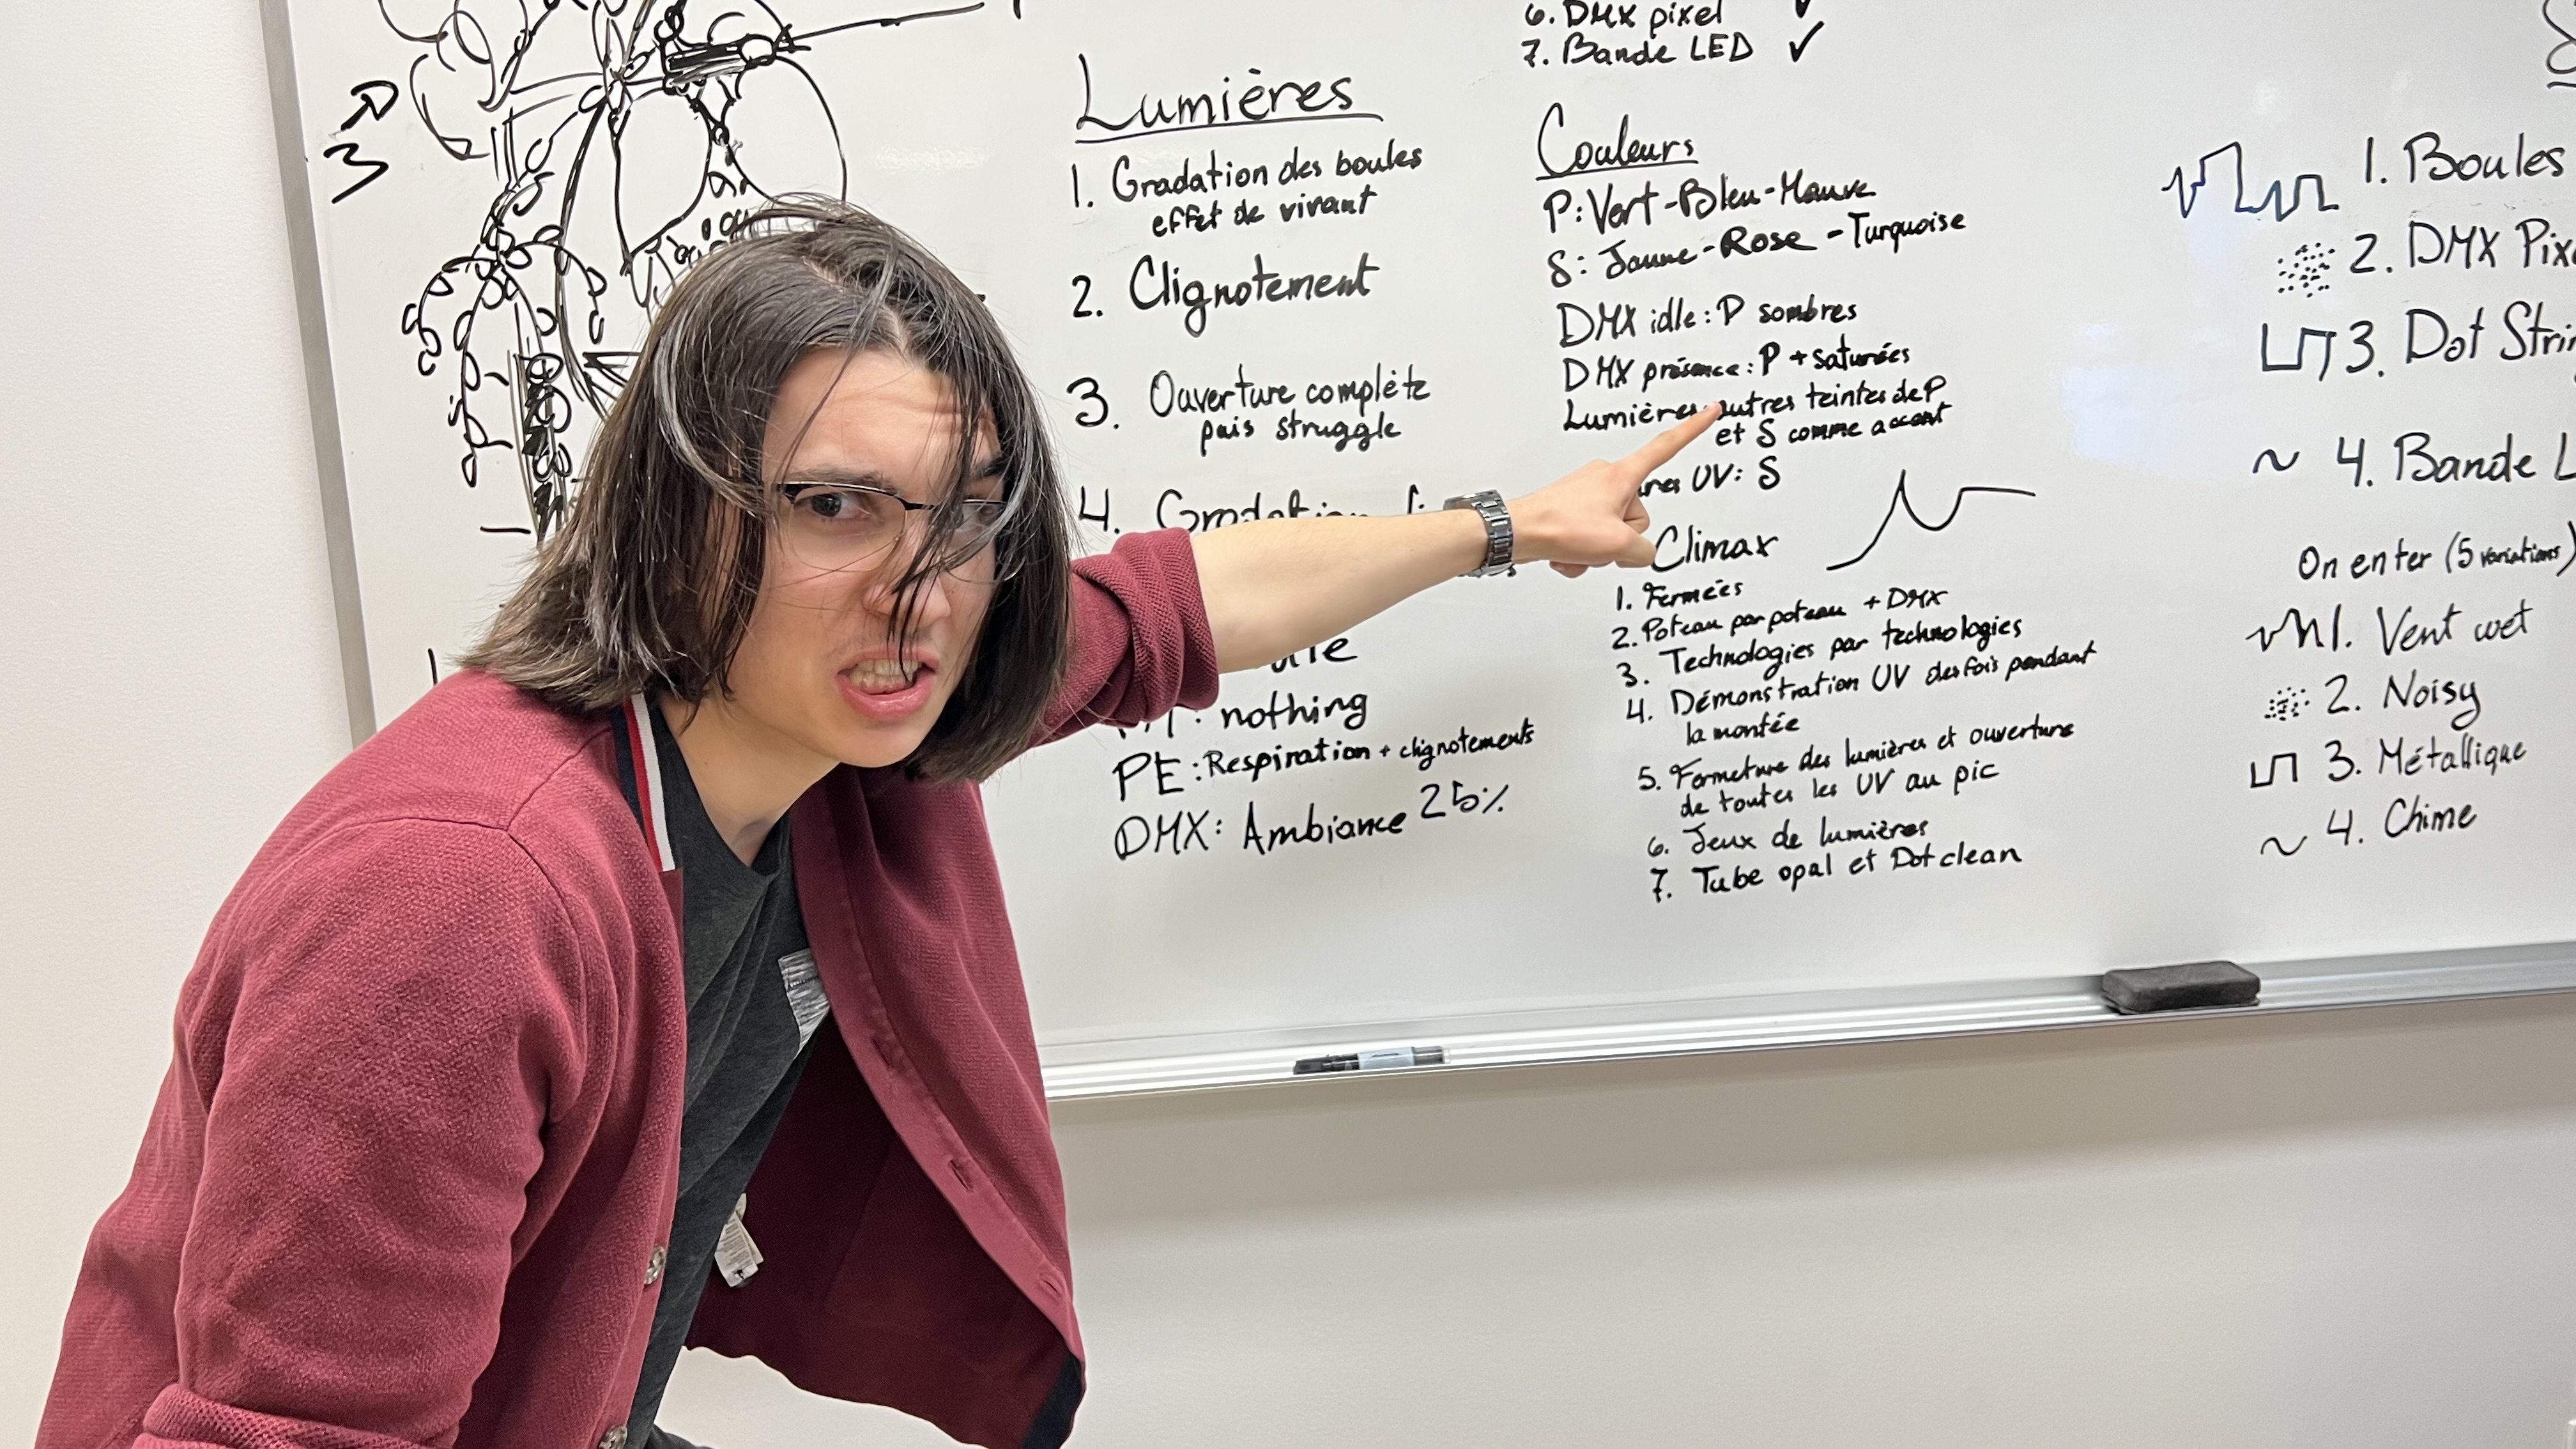 3
Lumières
1. Gradation des boules
effet de vivant
2. Clignotement
3. Ouverture complète
puis struggle
4. Gradation
: nothing
PE : Respiration + clignotements
DMX : Ambiance 25%
6. DMX pixel ✓
7. Bande LED ✓
Couleurs
P: Vert-Bleu-Mauve
S: Jaune-Rose-Turquoise
DMX idle: P sombres
DMX présence: P + saturées
Lumières autres teintes de P
et S comme accent
UV: S
Climax
1. Fermées
2. Poteau par poteau + DMX
3. Technologies par technologies
4. Démonstration UV des fois pendant
la montée
5. Fermeture des lumières et ouverture
de toutes les UV au pic
6. Jeux de lumières
7. Tube opal et Dot clean
1. Boules
2. DMX
3. Dot
~ 4. Bande
On enter (5 variations)
1. Vent wet
2. Noisy
3. Métallique
~ 4. Chime